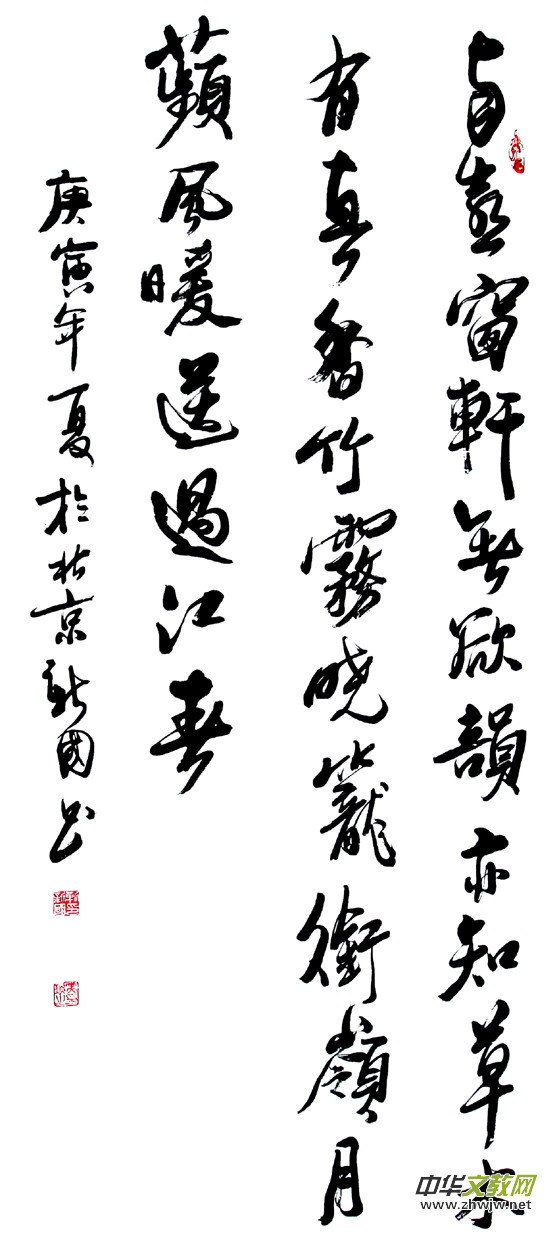 自喜窗軒無欲韻亦知草木
有真香竹霧曉籠銜嶺月
蘋風暖送過江春
庚寅年夏於北京新國书
中华文教网
www.zhwjw.net